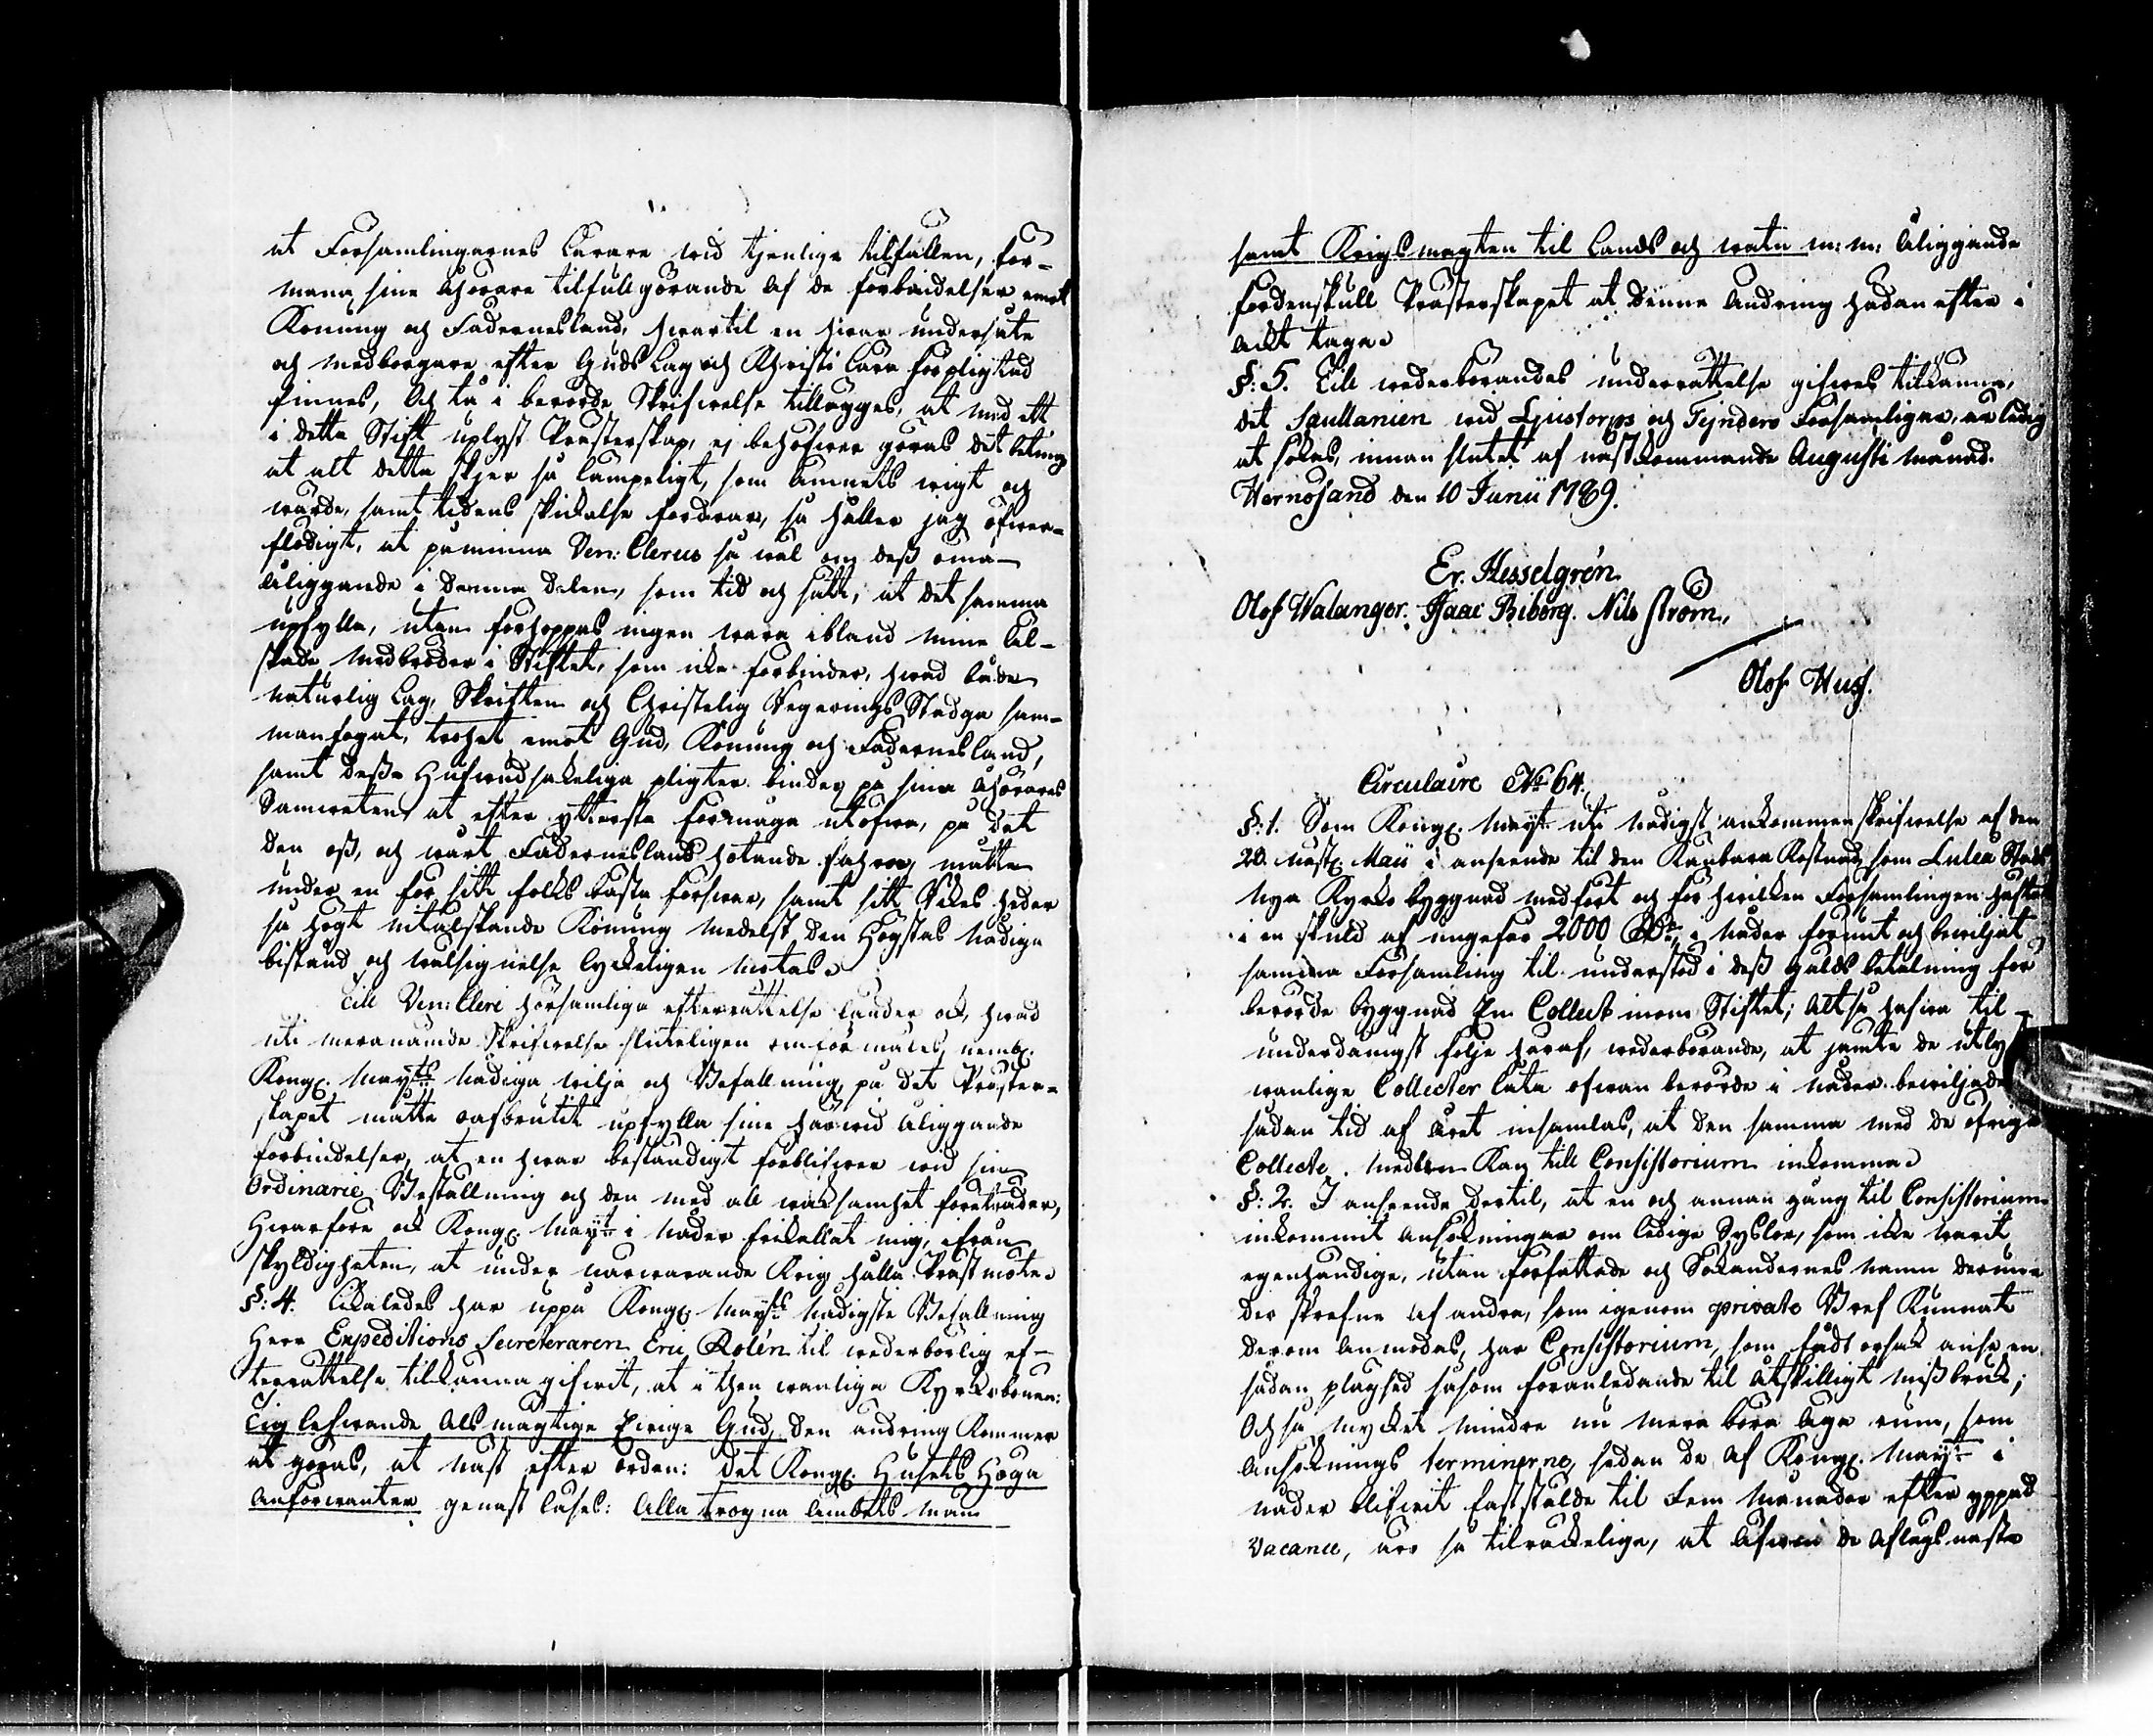 at Församlingarnes Lärare wid tjenliga tilfällen, för-
mana sine Åhörare til fullgörande af de förbindelser emot
Konung och Fädernesland, hwartil en hwar undersåte
och medborgare efter Guds Lag och Christi Lära förpligtad
finnes, Och tå i berörde Skrifwelse tillägges, at med ett
i detta Stift uplyst Prästerskap, ej behöfwer göras det
at alt detta skjer så lämpeligt, som Ämnets wigt och
wärde, samt tidens skickelse fordrar, så håller jag öfwer-
flödigt, at påminna Ven: Clerus så wäl om dess öma
åliggande i denna delen, som tid och sätt, at det samma
upfylla, utan förhoppas ingen wara ibland mine Äl-
skade Medbröder i Stiftet, som icke förbinder, hwad både
naturlig Lag, Skriften och Christelig Regerings Stadga sam-
manfogat, trohet emot Gud, Konung och Fädernesland,
samt desse hufwudsakeliga pligter binder på sina Åhörares
Samweten at efter yttersta förmåga utöfwa, på det
den oss, och wårt Fädernesland hotande fahran, måtte
under en för sitt folks bästa förswar, samt sitt Rikes heder
så högt nitälskande Konung medelst den Högstas Nådiga
bistånd och wälsignelse lyckeligen motas.
Till Ven: Cleri hörsamliga efterrättelse länder ock, hwad
uti meranämde Skrifwelse sluteligen omförmäles, neml.
Kongl. Mayts Nådiga wilja och Befallning, på det Präster-
skapet måtte oafbrutit upfylla sine härwid åliggande
förbindelser, at en hwar beständigt förblifwer wid sin
Ordinarie Beställning och den med all waksamhet förestår,
Hwarföre ock Kongl. Mayt i Nåder frikallat mig, ifrån
skyldigheten, at under närwarande Krig hålla Präst möte.
§: 4. Likaledes har uppå Kongl. Mayts Nådigste Befallning
Herr Expeditions Secreteraren Eric Rolén til wederbörlig ef-
terrättelse tilkänna gifwit, at i then wanliga Kyrkobönen:
Tig lefwande Alsmägtige Ewige Gud, den ändring kommer
at göras, at näst efter orden: det Kongl. Husets Höga
Anförwanter genast läses: Alla trogna Ämbets män
samt Krigsmagten til Lands och watn m: m: Åliggande
fördenskull Prästerskapet at denne Ändring hädan efter i
akt taga.
§: 5. Till wederbörandes underrättelse gifwes tilkänna,
det Saullanien wid Ljustorps och Tynderö Församlingar, är ledig
at sökas, innan slutet af nästkommande Augusti månad.
Hernösand den 10 Junii 1789.
Er. Hesselgrén
Olof Walanger. Isaac Biberg. Nils Ström.
Olof Huss.
Circulaire No 64.
§: 1. Som Kongl. Mayt uti Nådigst ankommen skrifwelse af den
20. nästl. Maii i anseende til den Kånbara Kostnad, som Luleå Stads
nya Kyrko byggnad medfört och för hwilken Församlingen häftar
i en skuld af ungefär 2000 Rdr, i Nåder förunt och bewiljat
samma Församling til understöd i dess gälds betalning för
berörde byggnad En Collect inom Stiftet; Altså hafwa til
underdånigst följe häraf, wederbörande, at jämte de utlyste
wanlige Collecter låta ofwan berörde i Nåder bewiljade
sådan tid af året insamlas, at den samma med de öfriga
Collecte Medlen Kan till Consistorium inkomma.
§: 2. I anseende dertil, at en och annan gång til Consistorium
inkommit ansökningar om ledige Syslor, som icke warit
egenhändige, utan författade och Sökandernes namn derun-
der skrefne af andra, som igenom private Bref Kunnat
derom anmodas, har Consistorium, som fådt orsak anse en
sådan plägsed såsom föranledande til Åtskilligt missbruk;
Och så mycket mindre nu mera böra äga rum, som
Ansöknings terminerne, sedan de af Kongl. Mayt i
nåder blifwit fastställde til Fem Månader efter yppad
Vacance, äro så tilräckelige, at Äfwen de Aflägsnaste